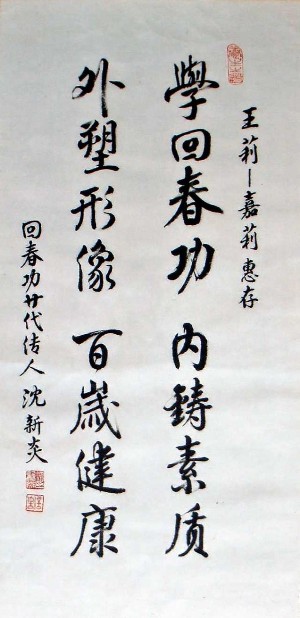 王莉—嘉莉 惠存
學回春功 内鑄素质
外塑形像 百歲健康
回春功廿代传人 沈新炎